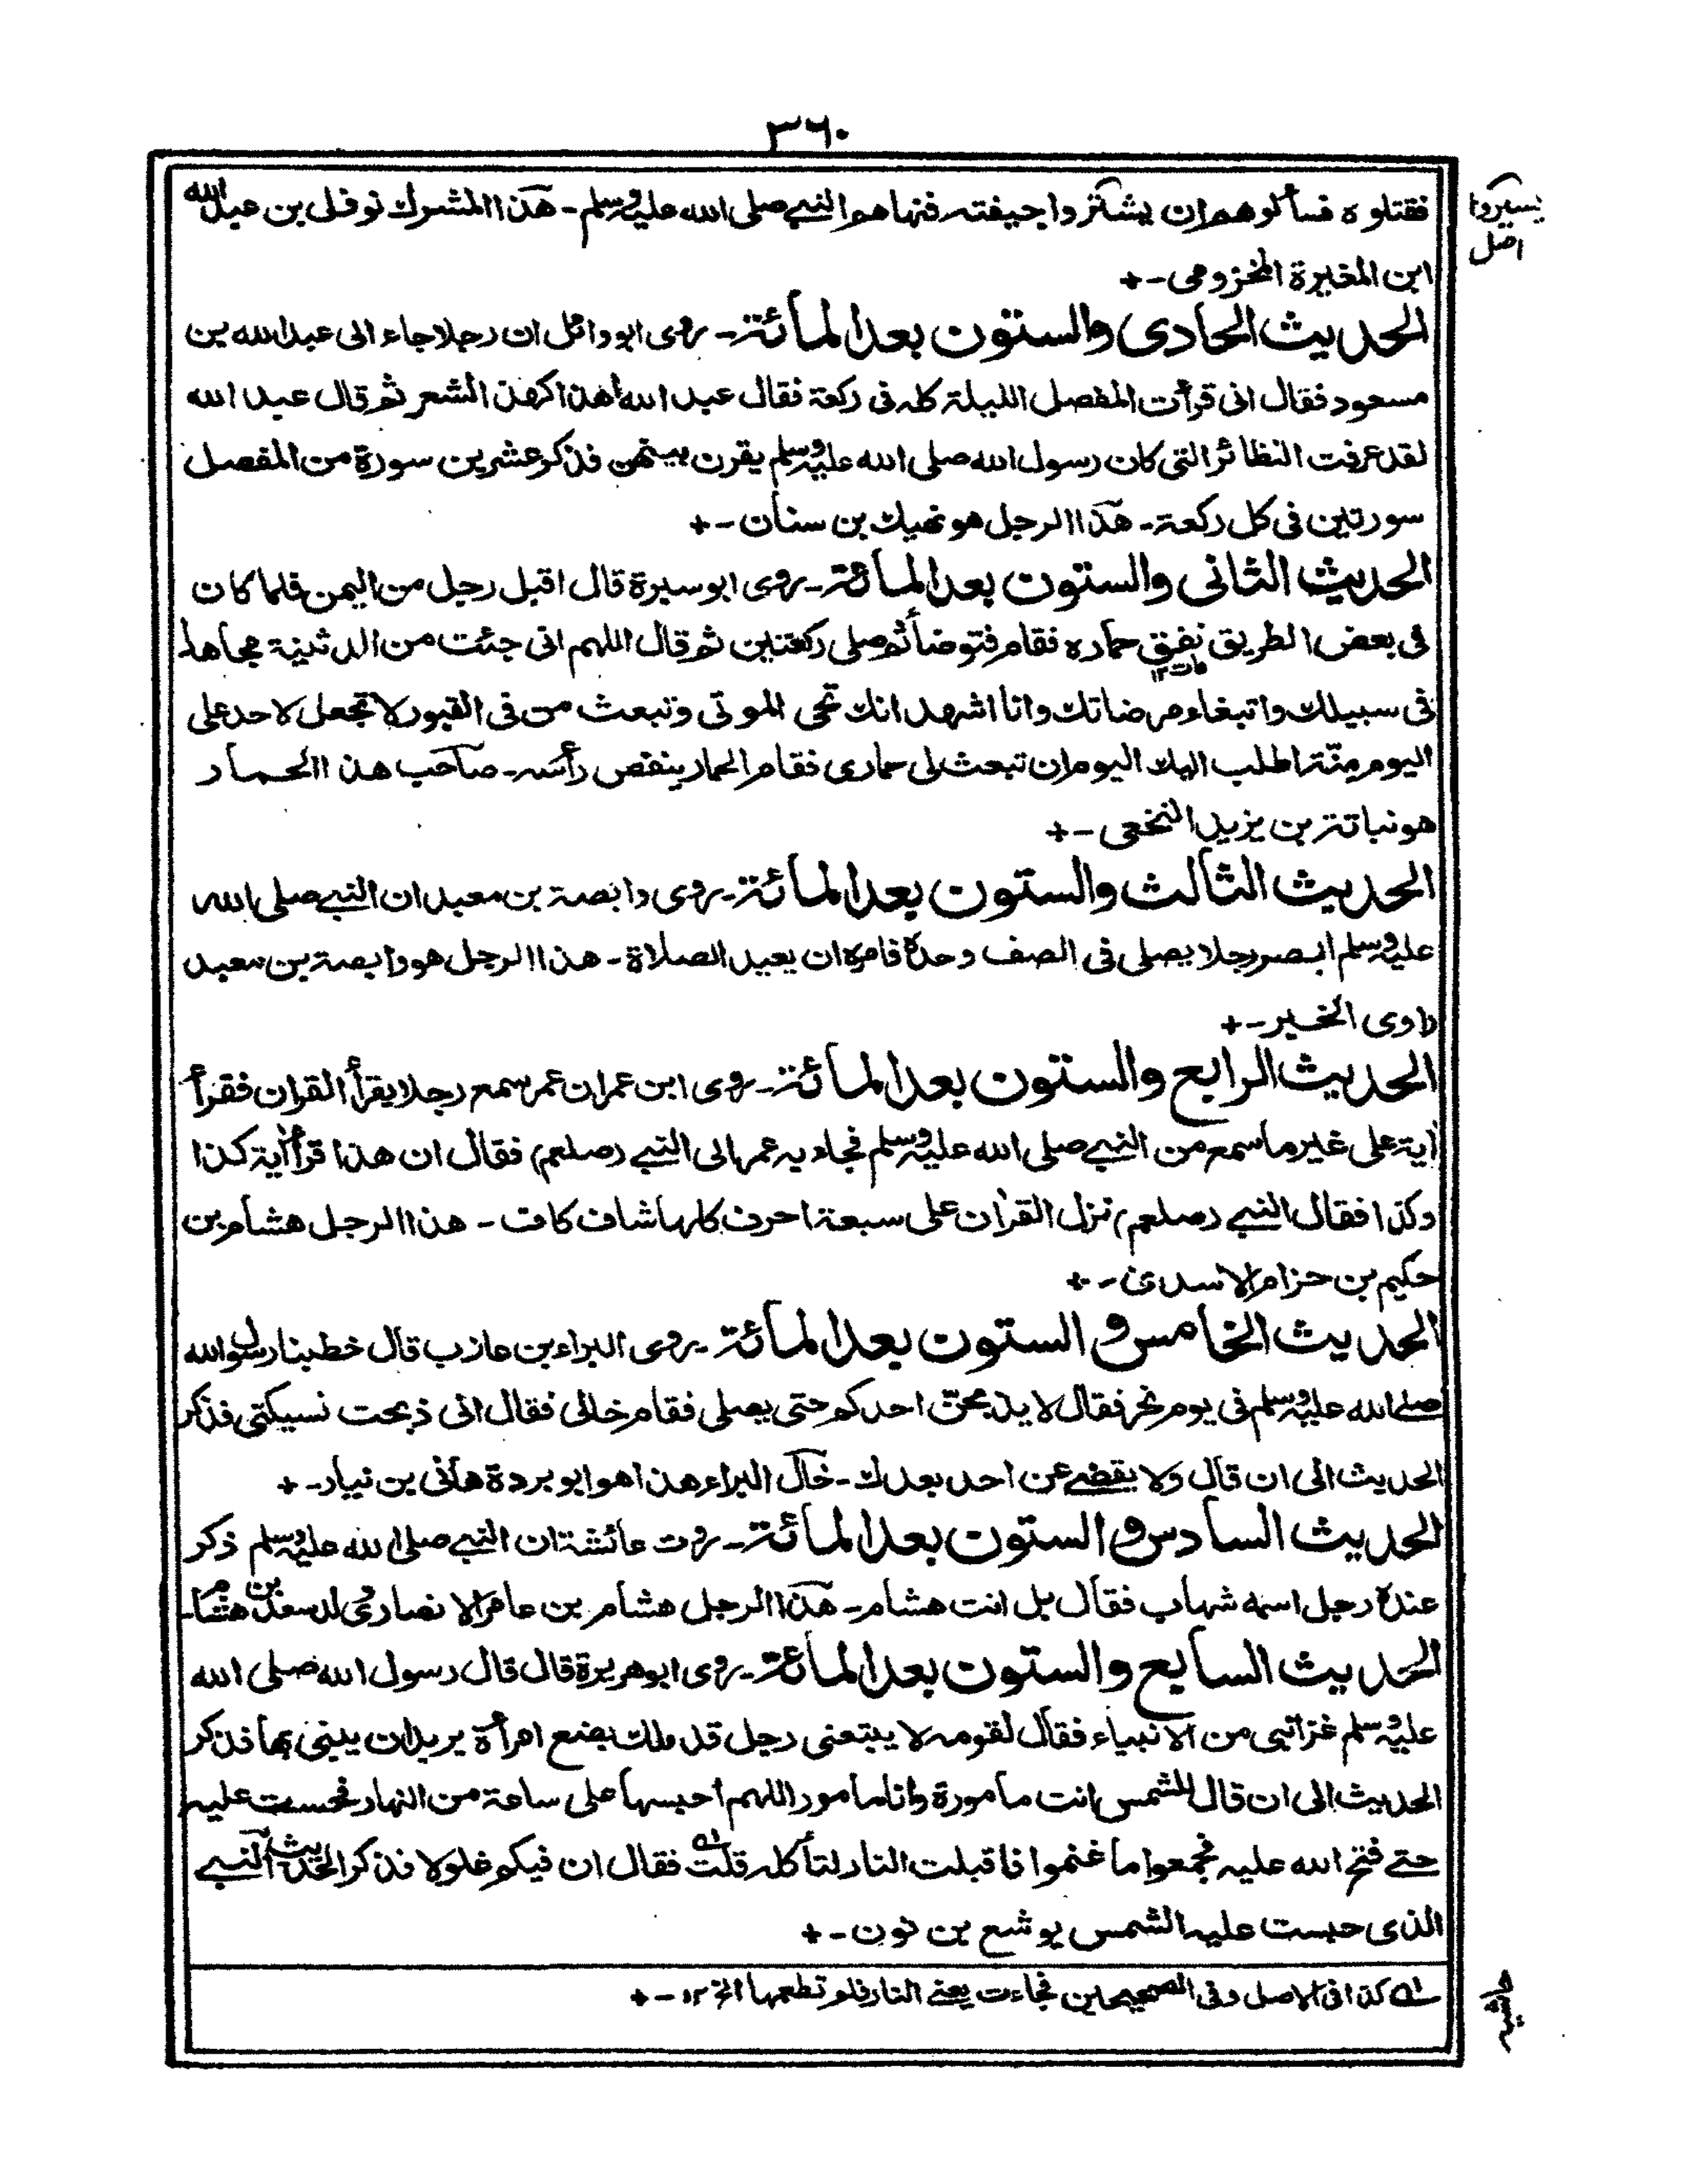 ٣٦٠
فقتلوه فسألوهم ان يشتروا جيفته فنهاهم النبي صلى الله عليه وسلم - هذا المشرك نوفل بن عبد الله
يسيروا
اصل
ابن المغيرة المخزومى - +
الحديث الحادى والستون بعد المائة - روى ابو وائل ان رجلا جاء الى عبد الله بن
مسعود فقال انى قرأت المفصل الليلة كله فى ركعة فقال عبد الله أهذا كهذ الشعر ثم قال عبد الله
لقد عرفت النظائر التى كان رسول الله صلى الله عليه وسلم يقرن بينهن فذكر عشرين سورة من المفصل
سورتين فى كل ركعة - هذا الرجل هو نهيك بن سنان - +
الحديث الثانى والستون بعد المائة - روى ابو سبرة قال اقبل رجل من اليمن فلما كان
فى بعض الطريق نفق حماره فقام فتوضأ ثم صلى ركعتين ثم قال اللهم انى جئت من الدثينة مجاهدا
مات ١٢
فى سبيلك وابتغاء مرضاتك وانا اشهد انك تحى الموتى وتبعث من فى القبور لا تجعل لاحد على
اليوم منّة اطلب اليك اليوم ان تبعث لى حمارى فقام الحمار ينفض رأسه - صاحب هذا الحمار
هو نباتة بن يزيد النخعى - +
الحديث الثالث والستون بعد المائة - روى وابصة بن معبد ان النبي صلى الله
عليه وسلم ابصر رجلا يصلى فى الصف وحدة فامره ان يعيد الصلاة - هذا الرجل هو وابصة بن معبد
راوى الخبر - +
الحديث الرابع والستون بعد المائة - روى ابن عمر ان عمر سمع رجلا يقرأ القران فقرأ
اية على غير ما سمع من النبي صلى الله عليه وسلم فجاء به عمر الى النبي (صلعم) فقال ان هذا قرأ اية كذا
وكذا فقال النبي (صلعم) نزل القران على سبعة احرف كلها شاف كاف - هذا الرجل هشام بن
حكيم بن حزام الاسدى - +
الحديث الخامس و الستون بعد المائة - روى البراء بن عازب قال خطبنا رسول الله
صلى الله عليه وسلم فى يوم نحر فقال لا يذبحنّ احدكم حتى يصلى فقام خالى فقال انى ذبحت نسيكتى فذكر
الحديث الى ان قال ولا يقضى عن احد بعدك - خال البراء هذا هو ابو بردة هانى بن نيار - +
الحديث السادس و الستون بعد المائة - روت عائشة ان النبي صلى الله عليه وسلم ذكر
عنده رجل اسمه شهاب فقال بل انت هشام - هذا الرجل هشام بن عامر الانصارى والد سعد بن هشام -
الحديث السابع والستون بعد المائة - روى ابو هريرة قال قال رسول الله صلى الله
عليه وسلم غزا نبى من الانبياء فقال لقومه لا يتبعنى رجل قد ملك بضع امرأة يريد ان يبنى بها فذكر
الحديث الى ان قال للشمس انت مأمورة وانا مامور اللهم احبسها على ساعة من النهار فحبست عليه
حتى فتح الله عليه فجمعوا ما غنموا فاقبلت النار لتأكله قلت ١ه فقال ان فيكم غلولا فذكر الحديث النبي
الذى حبست عليه الشمس يوشع بن نون - +
١ه كذا فى الاصل وفى الصحيحين فجاءت يعنى النار فلم تطعمها الخ ١٢ - +
حاشيه